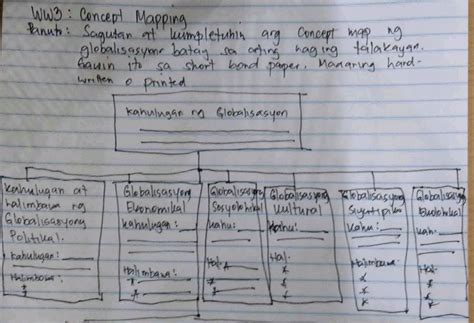 WW3: Concept Mapping
Panuto: Sagutan at kumpletuhin ang Concept map ng
globalisasyong batay sa ating naging talakayan.
Gawin ito sa short bond paper. Maaaring hand-
written o printed
Kahulugan ng Globalisasyon
Kahulugan at
halimbawa ng
Globalisasyong
Politikal:
Kahulugan:
Halimbawa:
Globalisasyong
Ekonomikal
Kahulugan:
Halimbawa:
Globalisasyong
Kahu:
Hal:
Globalisasyong
Kultural
Kahu:
Hal:
Globalisasyong
Kahu:
Halimbawa:
Globalisasyong
Kah:
Hal: